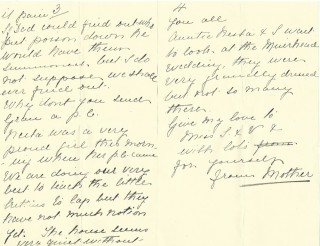 it pain 3
If Dod could find out who
put poison down he
would have them
summoned but I do
not suppose we shall
ever find out.
Why dont you send
Gran a p.c.
Neeta was a very
proud girl this morn-
ing when her p.c came
We are doing our very
best to teach the little
kittens to lap but they
have not much notion
yet. The house seems
very quiet without
4
you all
Auntie Neeta & I went
to look at the Muirhead
wedding, they were
very grandly dressed
but not so many
there
Give my love to
Miss S & V &
with lots from
for yourself
from Mother